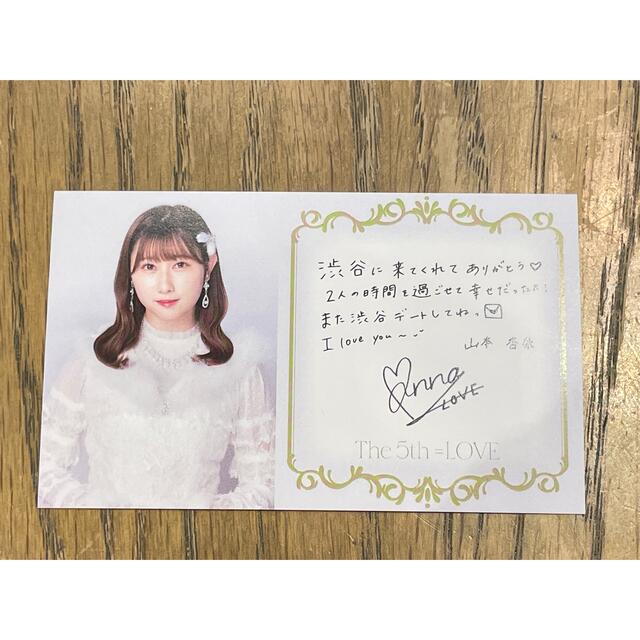 渋谷に来てくれてありがとう♡
2人の時間を過ごせて幸せだったた!
また渋谷デートしてねっ
I love you~
山本 杏奈
Anna
LOVE
The 5th =LOVE